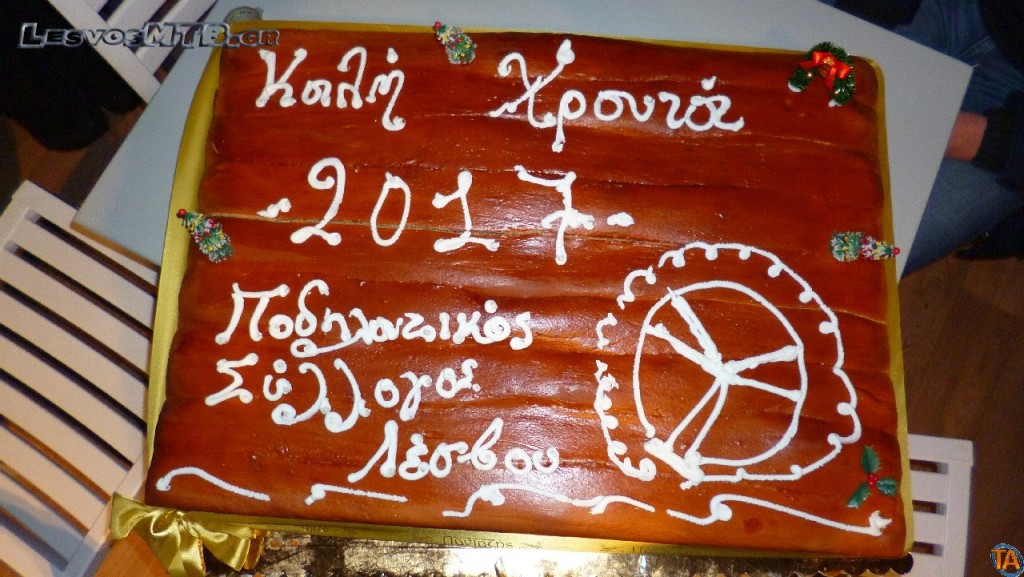 LesvosMTB.gr
Καλή Χρονιά
-2017-
Ποδηλατικός
Σύλλογος
Λέσβου
TA